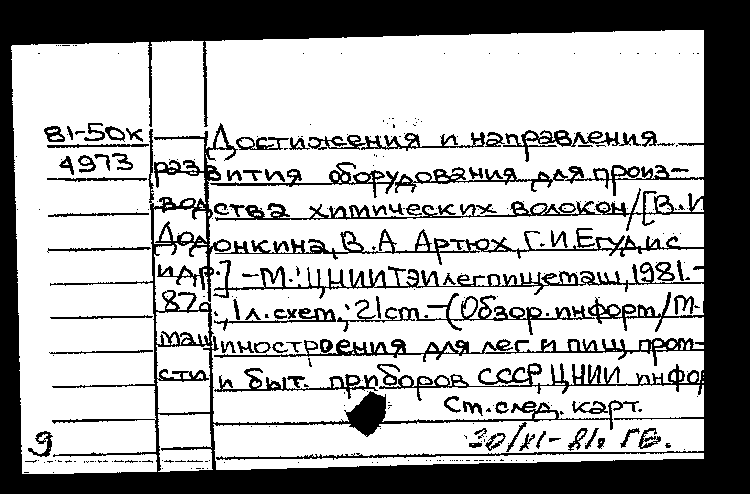 81-50к Достижения и направления
4973 развития оборудования для произ-
водства химических волокон/[В.И
Додонкина, В.А Артюх, Г.И.Егуд,
и др.] -М.: ЦНИИТЭИлегпищемаш, 1981.-
87с., 1 л. схем.; 21см. -(Обзор. информ/М-
машиностроения для лег. и пищ. пром-
сти и быт. приборов СССР, ЦНИИ инфор
См. след. карт.
9 30/XI-81г. ГБ.